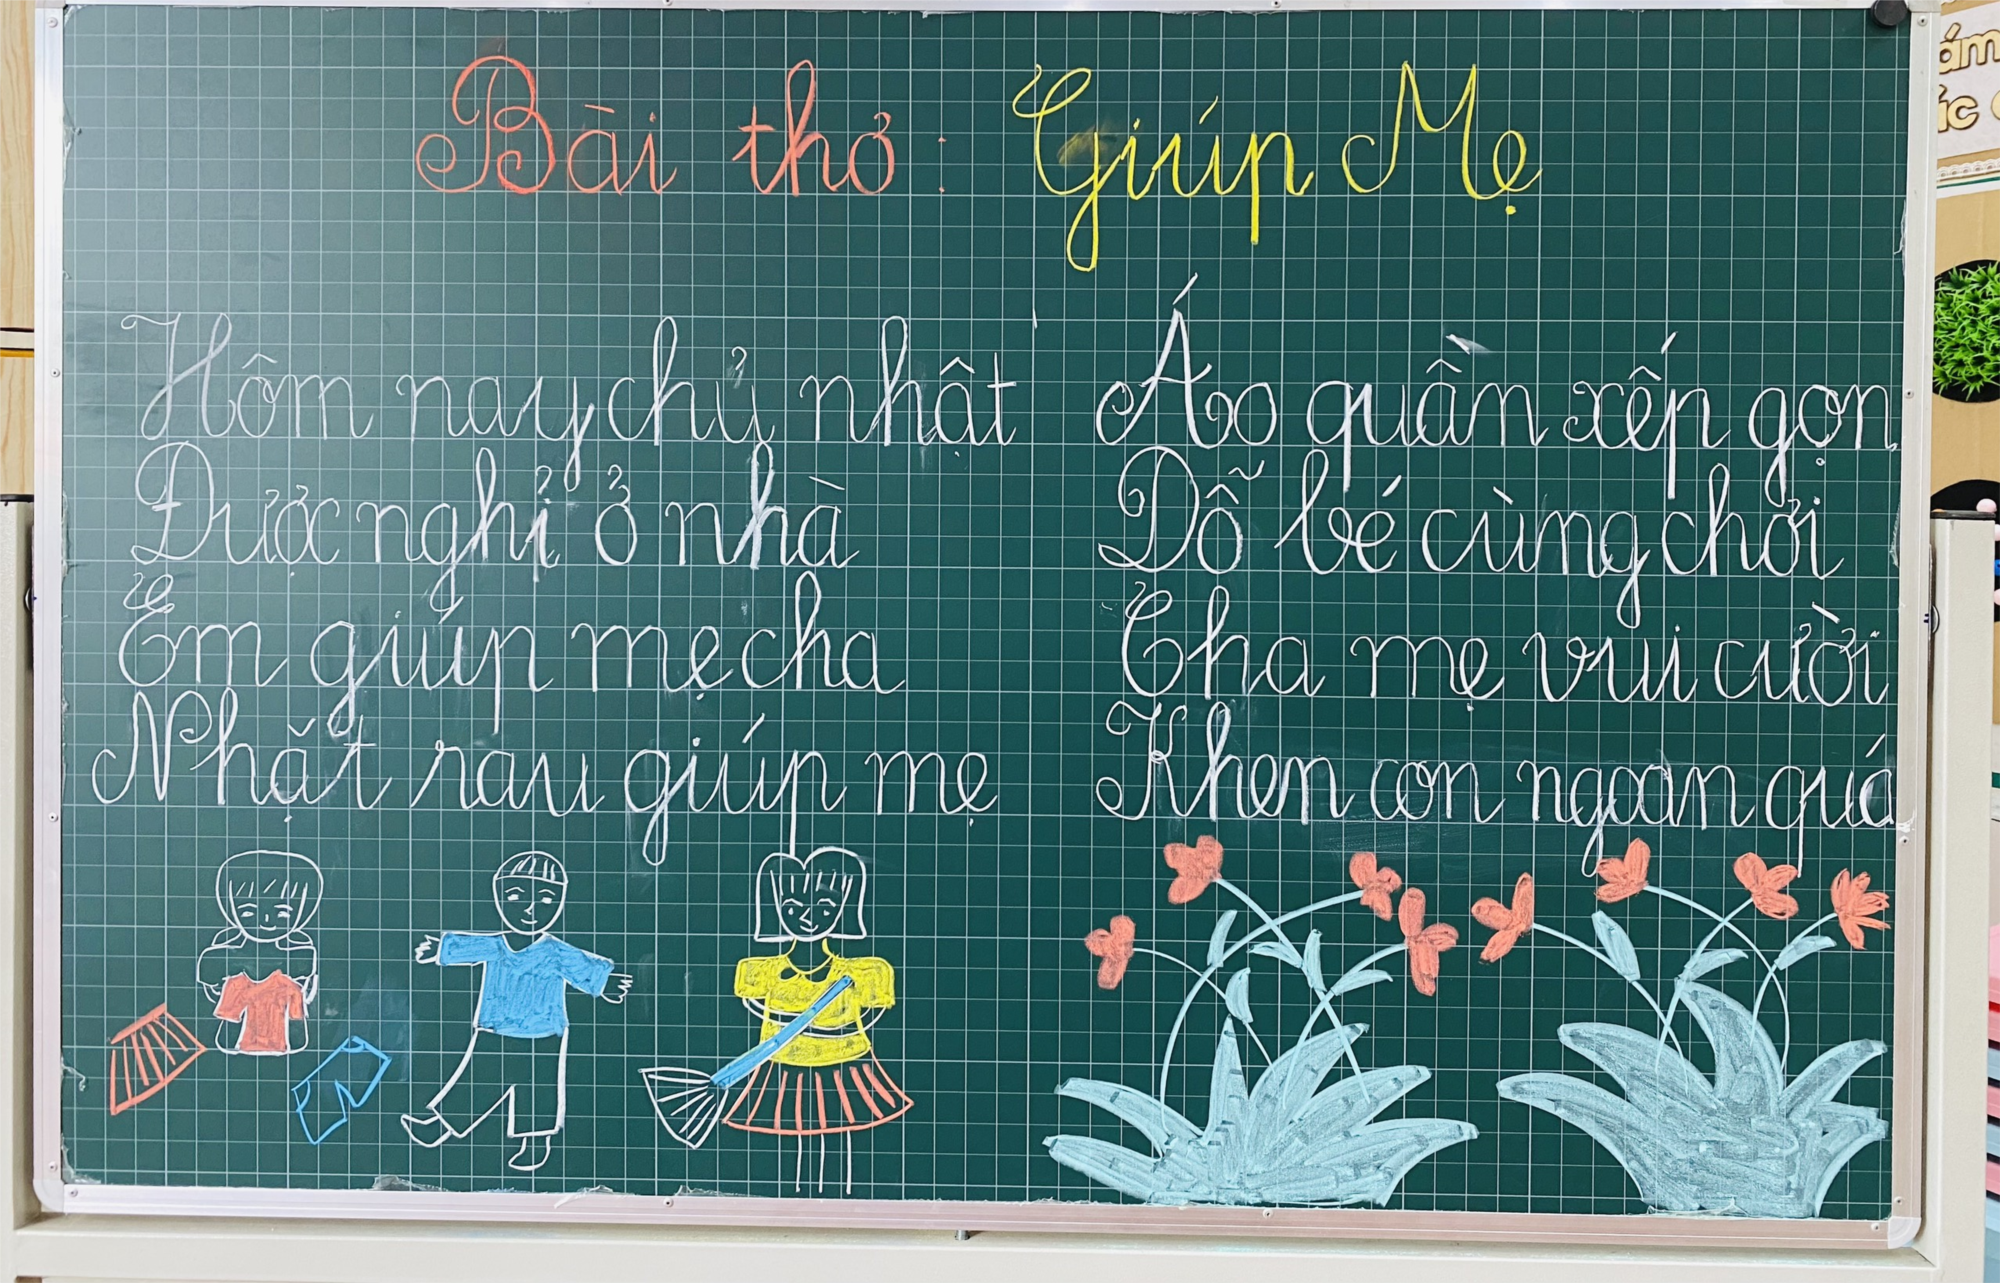 Bài thơ: Giúp Mẹ
Hôm nay chủ nhật
Được nghỉ ở nhà
Em giúp mẹ cha
Nhặt rau giúp mẹ
Áo quần xếp gọn
Dỗ bé cùng chơi
Cha mẹ vui cười
Khen con ngoan quá